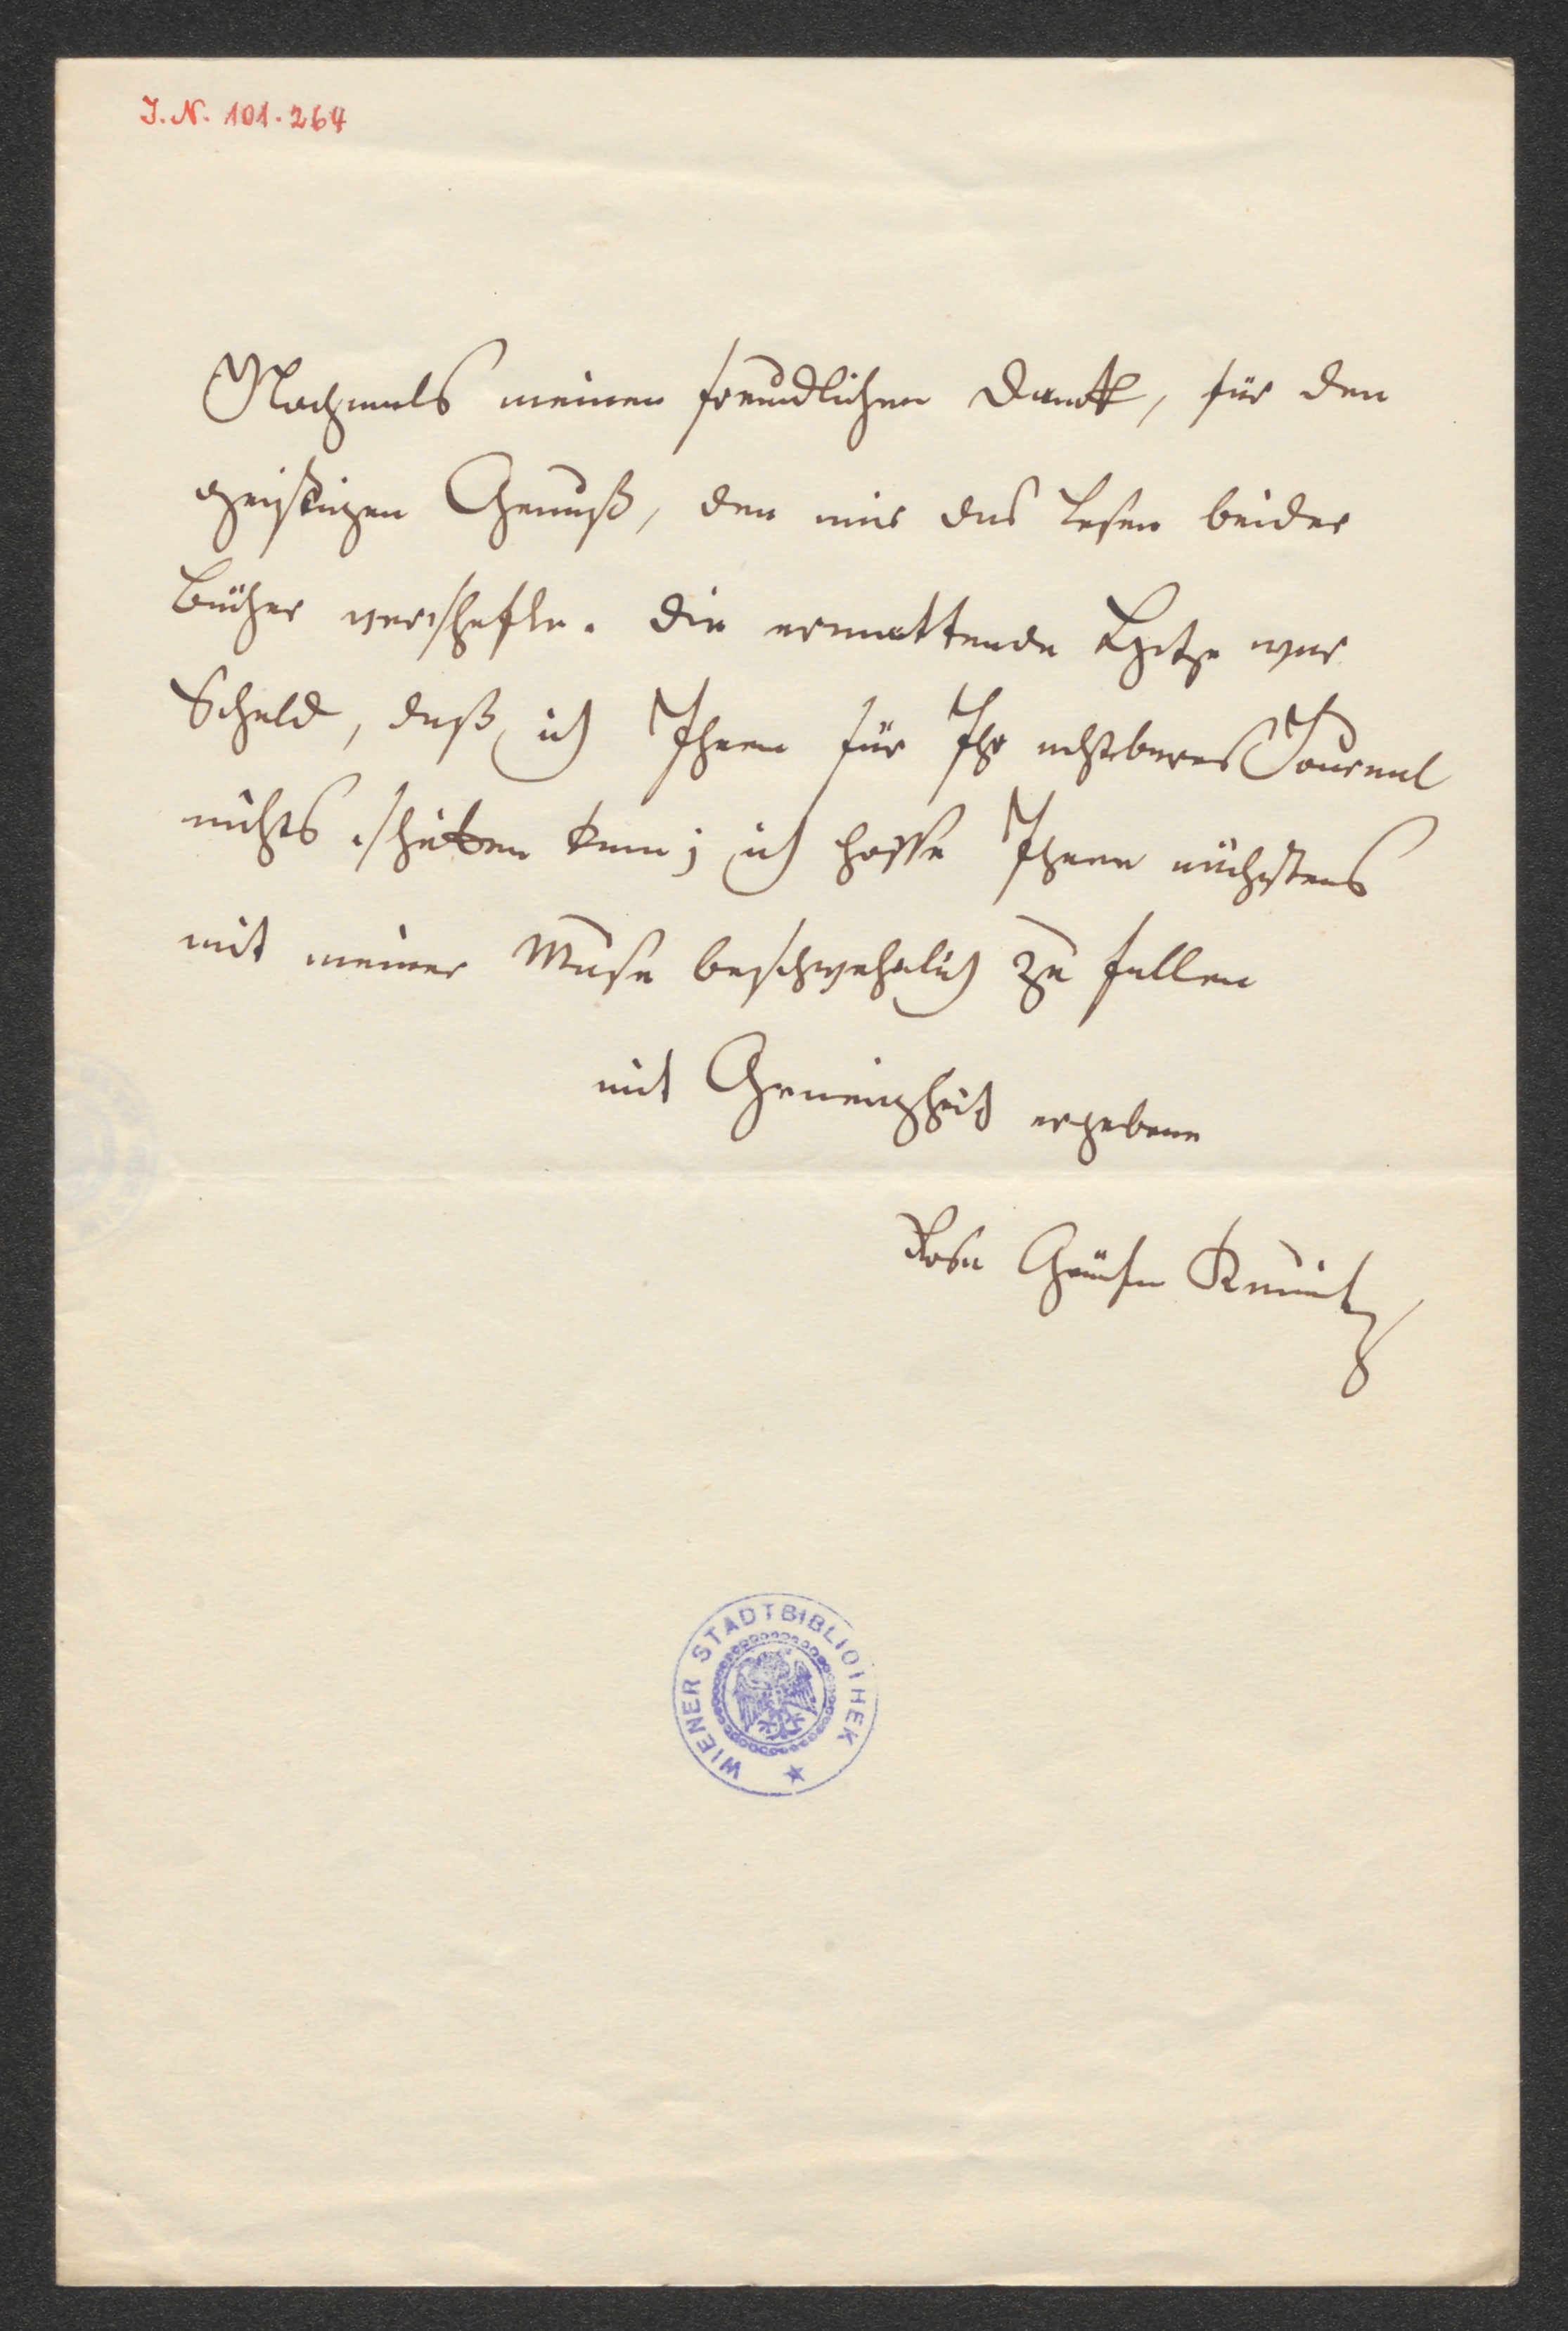 I. N. 101.264
Nochmals meinen freundlichen Dank, für den
geistigen Genuß, den mir das Lesen beider
Bücher verschafte. Die ermattende Hitze war
Schuld, daß ich Ihnen für Ihr achtbares Journal
nichts schiken kann; ich hoffe Ihnen nächstens
mit meiner Muse beschwehrlich zu fallen
mit Geneigtheit ergebene
Rosa Gräfin Kaunitz
WIENER STADTBIBLIOTHEK